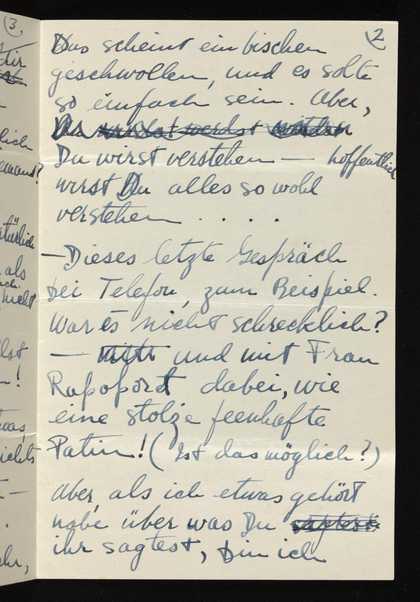 3
dir
2
Das scheint ein bischen
geschwollen, und es sollte
so einfach sein. Aber,
Du
Du wirst verstehen — hoffentlich
wirst Du alles so wohl
verstehen . . . . .
— Dieses letzte Gespräch
bei Telefon, zum Beispiel.
War es nicht schrecklich?
— und mit Frau
Rapoport dabei, wie
eine stolze feenhafte
Patin! (Ist das möglich?)
Aber, als ich etwas gehört
habe über was Du
ihr sagtest, bin ich